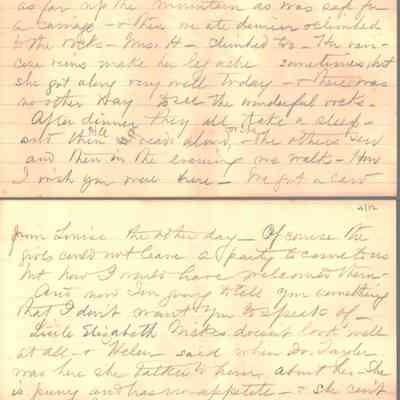 as far up the mountain as was safe for
a carriage - & then we ate dinner & climbed
to the rocks - Mrs. H - climbed too - Her vari-
cose veins make her leg ache sometimes, but
she got along very well today - & there was
no other way to see the wonderful rocks -
After dinner they all take a sleep -
and then Nell reads aloud, - the others sew
and then in the evening we walk - How
I wish you were here - We got a card
4/12
from Louise the other day - Of course the
girls could not leave a party to come to us
but how I would have welcomed them -
And now I'm going to tell you something
that I don't want you to speak of -
Little Elizabeth doesn't look well
at all - & Helen said when Dr. Taylor
was here she talked to him about her - She
is puny and has no appetite - & she can't